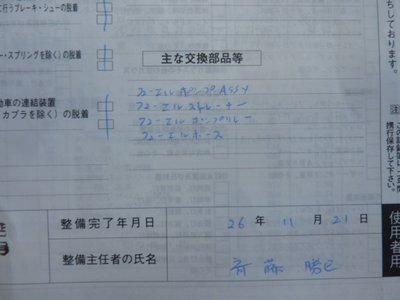 に行うブレーキ・シューの脱着
ー・スプリングを除く）の脱着
主な交換部品等
動車の連結装置
カプラを除く）の脱着
フューエルポンプASSY
フューエルストレーナー
フューエルポンプリレー
フューエルホース
整備完了年月日
26 年 11 月 21 日
整備主任者の氏名
斉藤 勝巳
ちしております。
注
携行保存して下さい。
使用者用